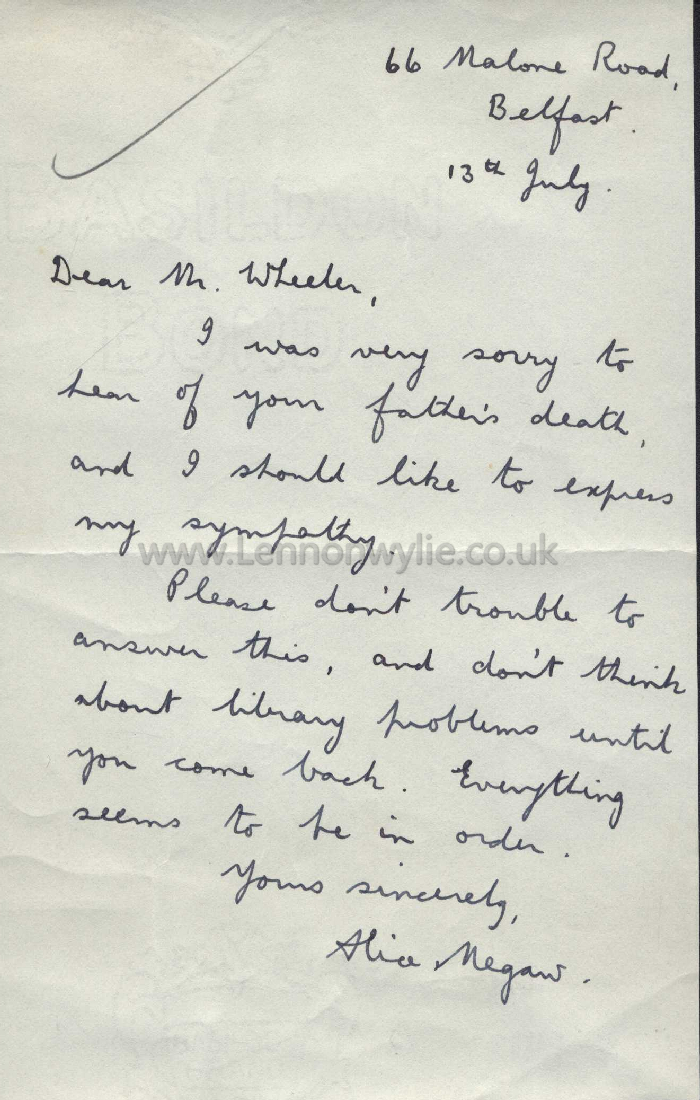 66 Malone Road,
Belfast.
13th July.
Dear Mr. Wheeler,
I was very sorry to
hear of your father's death,
and I should like to express
my sympathy.
www.Lennonwylie.co.uk
Please don't trouble to
answer this, and don't think
about library problems until
you come back. Everything
seems to be in order.
Yours sincerely,
Alice Megaw.